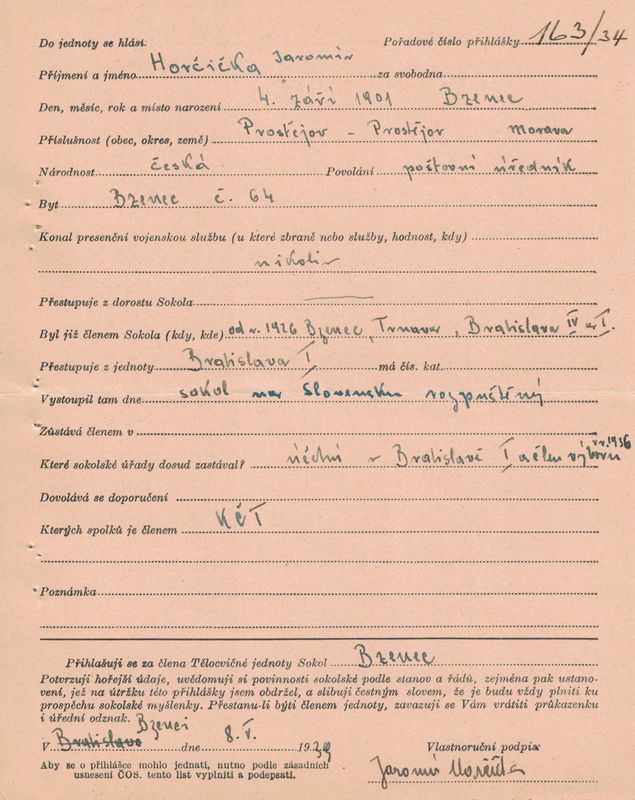 Do jednoty se hlásí: Pořadové číslo přihlášky 163/34
Příjmení a jméno Horčička Jaromír za svobodna
Den, měsíc, rok a místo narození 4. září 1901 Bzenec
Příslušnost (obec, okres, země) Prostějov - Prostějov Morava
Národnost česká Povolání poštovní úředník
Byt Bzenec č. 64
Konal presenční vojenskou službu (u které zbraně nebo služby, hodnost, kdy)
nikoliv
Přestupuje z dorostu Sokola
Byl již členem Sokola (kdy, kde) od r. 1926 Bzenec, Trnava, Bratislava IV a I.
Přestupuje z jednoty Bratislava I má čís. kat.
Vystoupil tam dne sokol na Slovensku rozpuštěný
Zůstává členem v
Které sokolské úřady dosud zastával? v Bratislavě I a člen výboru v r. 1936
Dovolává se doporučení
Kterých spolků je členem KČT
Poznámka
Přihlašuji se za člena Tělocvičné jednoty Sokol Bzenec
Potvrzuji hořejší údaje, uvědomuji si povinnosti sokolské podle stanov a řádů, zejména pak ustano-
vení, jež na útržku této přihlášky jsem obdržel, a slibuji čestným slovem, že je budu vždy plniti ku
prospěchu sokolské myšlenky. Přestanu-li býti členem jednoty, zavazuji se Vám vrátiti průkazenku
i úřední odznak.
Bzenci
V Bratislava dne 8. V. 1939 Vlastnoruční podpis:
Aby se o přihlášce mohlo jednati, nutno podle zásadních
usnesení ČOS. tento list vyplniti a podepsati.
Jaromír Horčička